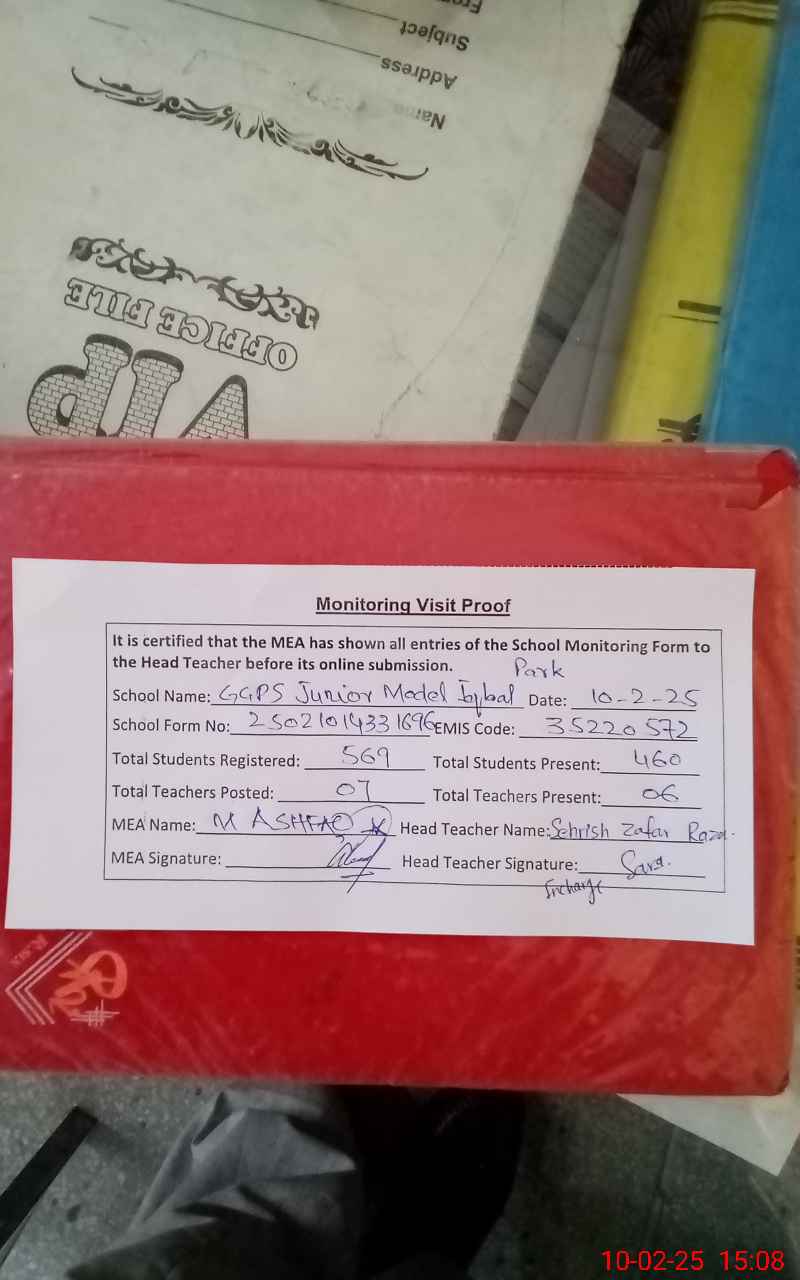 From
Subject
Address
Name
OFFICE FILE
VIP
Monitoring Visit Proof
It is certified that the MEA has shown all entries of the School Monitoring Form to
the Head Teacher before its online submission.
Park
School Name: GGPS Junior Model Iqbal Date: 10-2-25
School Form No: 25021014331696 EMIS Code: 35220572
Total Students Registered: 569 Total Students Present: 460
Total Teachers Posted: 07 Total Teachers Present: 06
MEA Name: M ASHFAQ Head Teacher Name: Sehrish Zafar Raza.
MEA Signature: Head Teacher Signature: Sara.
Incharge
10-02-25 15:08